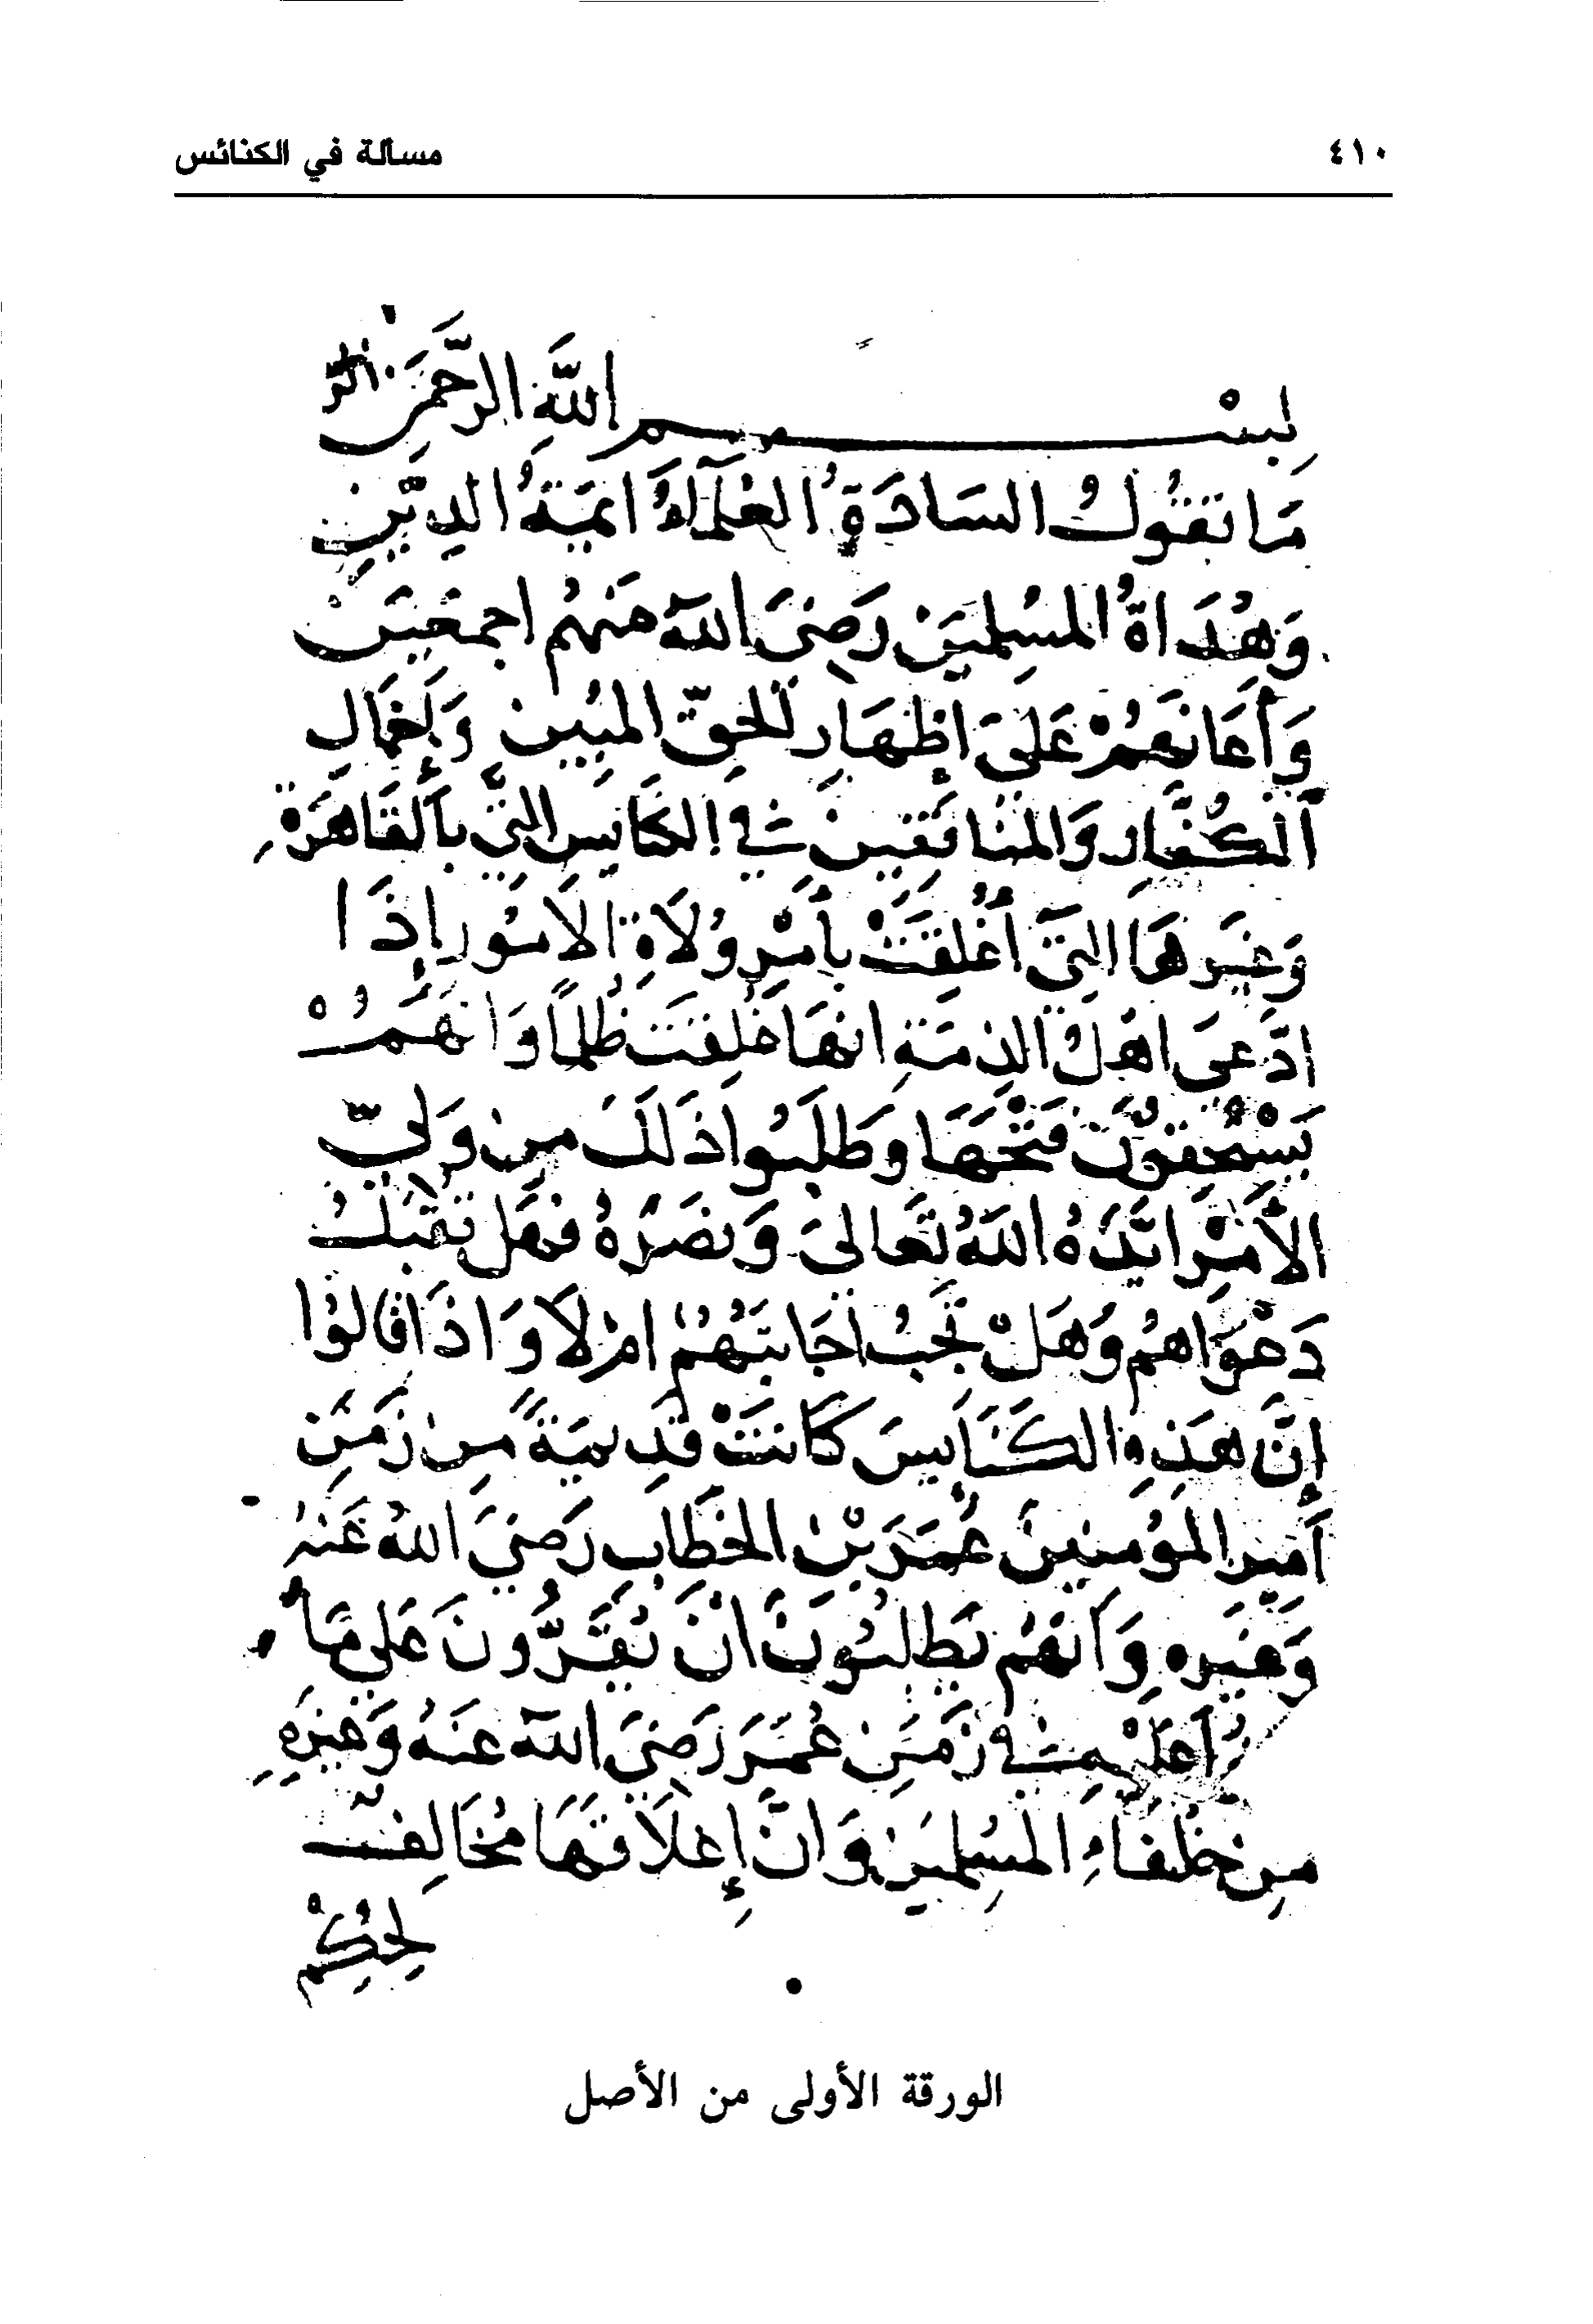 ٤١٠
مسألة في الكنائس
بِسْم اللَّهِ الرَّحْمَن الر
مَا تَقُولُ السَّادَةُ العُلَمَآءُ ايمَّةُ الدِّينِ
وَهُدَاةُ المُسْلِمينَ رَضِيَ اللَّهُ عَنهُم اجمعَينَ
وَأَعَانَهُمْ عَلَى إِظهَارِ الحَقّ المُبين وَإِخمَالِ
الكُفَّارِ وَالمُنَافِقينَ في الكنَايسِ الَّتي بالقَاهِرَةِ
وَغَيرهَا الَّتي أُغْلِقَتْ بأمْرِ وُلَاةِ الامُور إِذَا
ادَّعَى اهْلُ الذمَّةِ انهَا غُلِقَت ظُلماً وَانهُمْ
يَسْتَحِقُّونَ فَتْحَهَا وطَلَبُوا ذَلكَ مِن وَليّ
الأَمْرِ ايَّدَهُ اللَّهُ تَعَالى وَنصَرَهُ فهَل تُقبَلُ
دَعْوَاهُم وَهَلْ تجَبُ اجَابَتهُمْ امْ لَا وَاذَا قَالوُا
إِنَّ هَذِهِ الكَنَايسَ كَانَتْ قَدِيمَةً مِن زَمَن
أَمير المؤمنين عُمَرَ بْن الخطَّاب رَضِيَ اللهُ عَنهُ
وَغيره وَأنهُم يَطلبُونَ انْ يُقَرُّونَ عَلى مَا
اعَلَيْهِ في زَمَن عُمَرَ رَضِيَ اللَّه عَنهُ وَغَيرِهِ
مِن خُلَفَاءِ المسْلِمين وَانَّ إِغلَاقهَا مُخَالِف
لِحُكْم
الورقة الأولى من الأصل